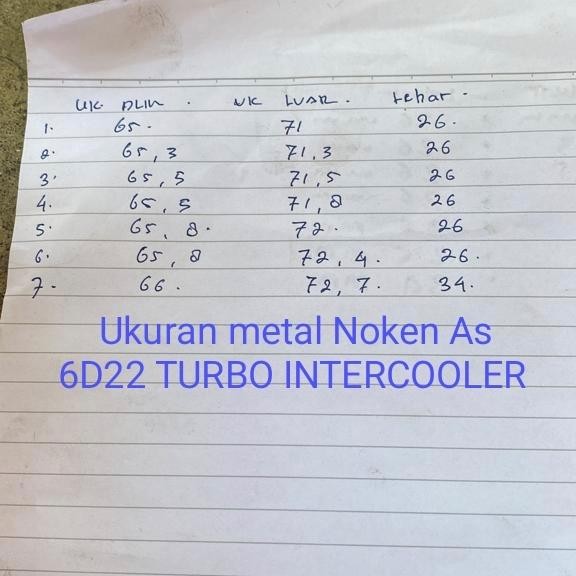 UK DLM. UK LUAR. Lebar.
1. 65. 71 26.
2. 65,3 71,3 26
3. 65,5 71,5 26
4. 65,5 71,8 26
5. 65,8. 72. 26
6. 65,8 72,4. 26.
7. 66. 72,7. 34.
Ukuran metal Noken As
6D22 TURBO INTERCOOLER